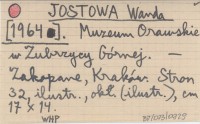 JOSTOWA Wanda
[1964]. Muzeum Orawskie
w Zubrzycy Górnej. —
Zakopane, Kraków. Stron
32, ilustr., okł. (ilustr.), cm
17 x 14.
WHP